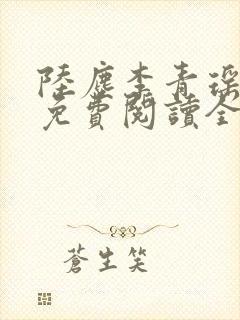 陸塵李青瑤
免費閱讀全
蒼生笑